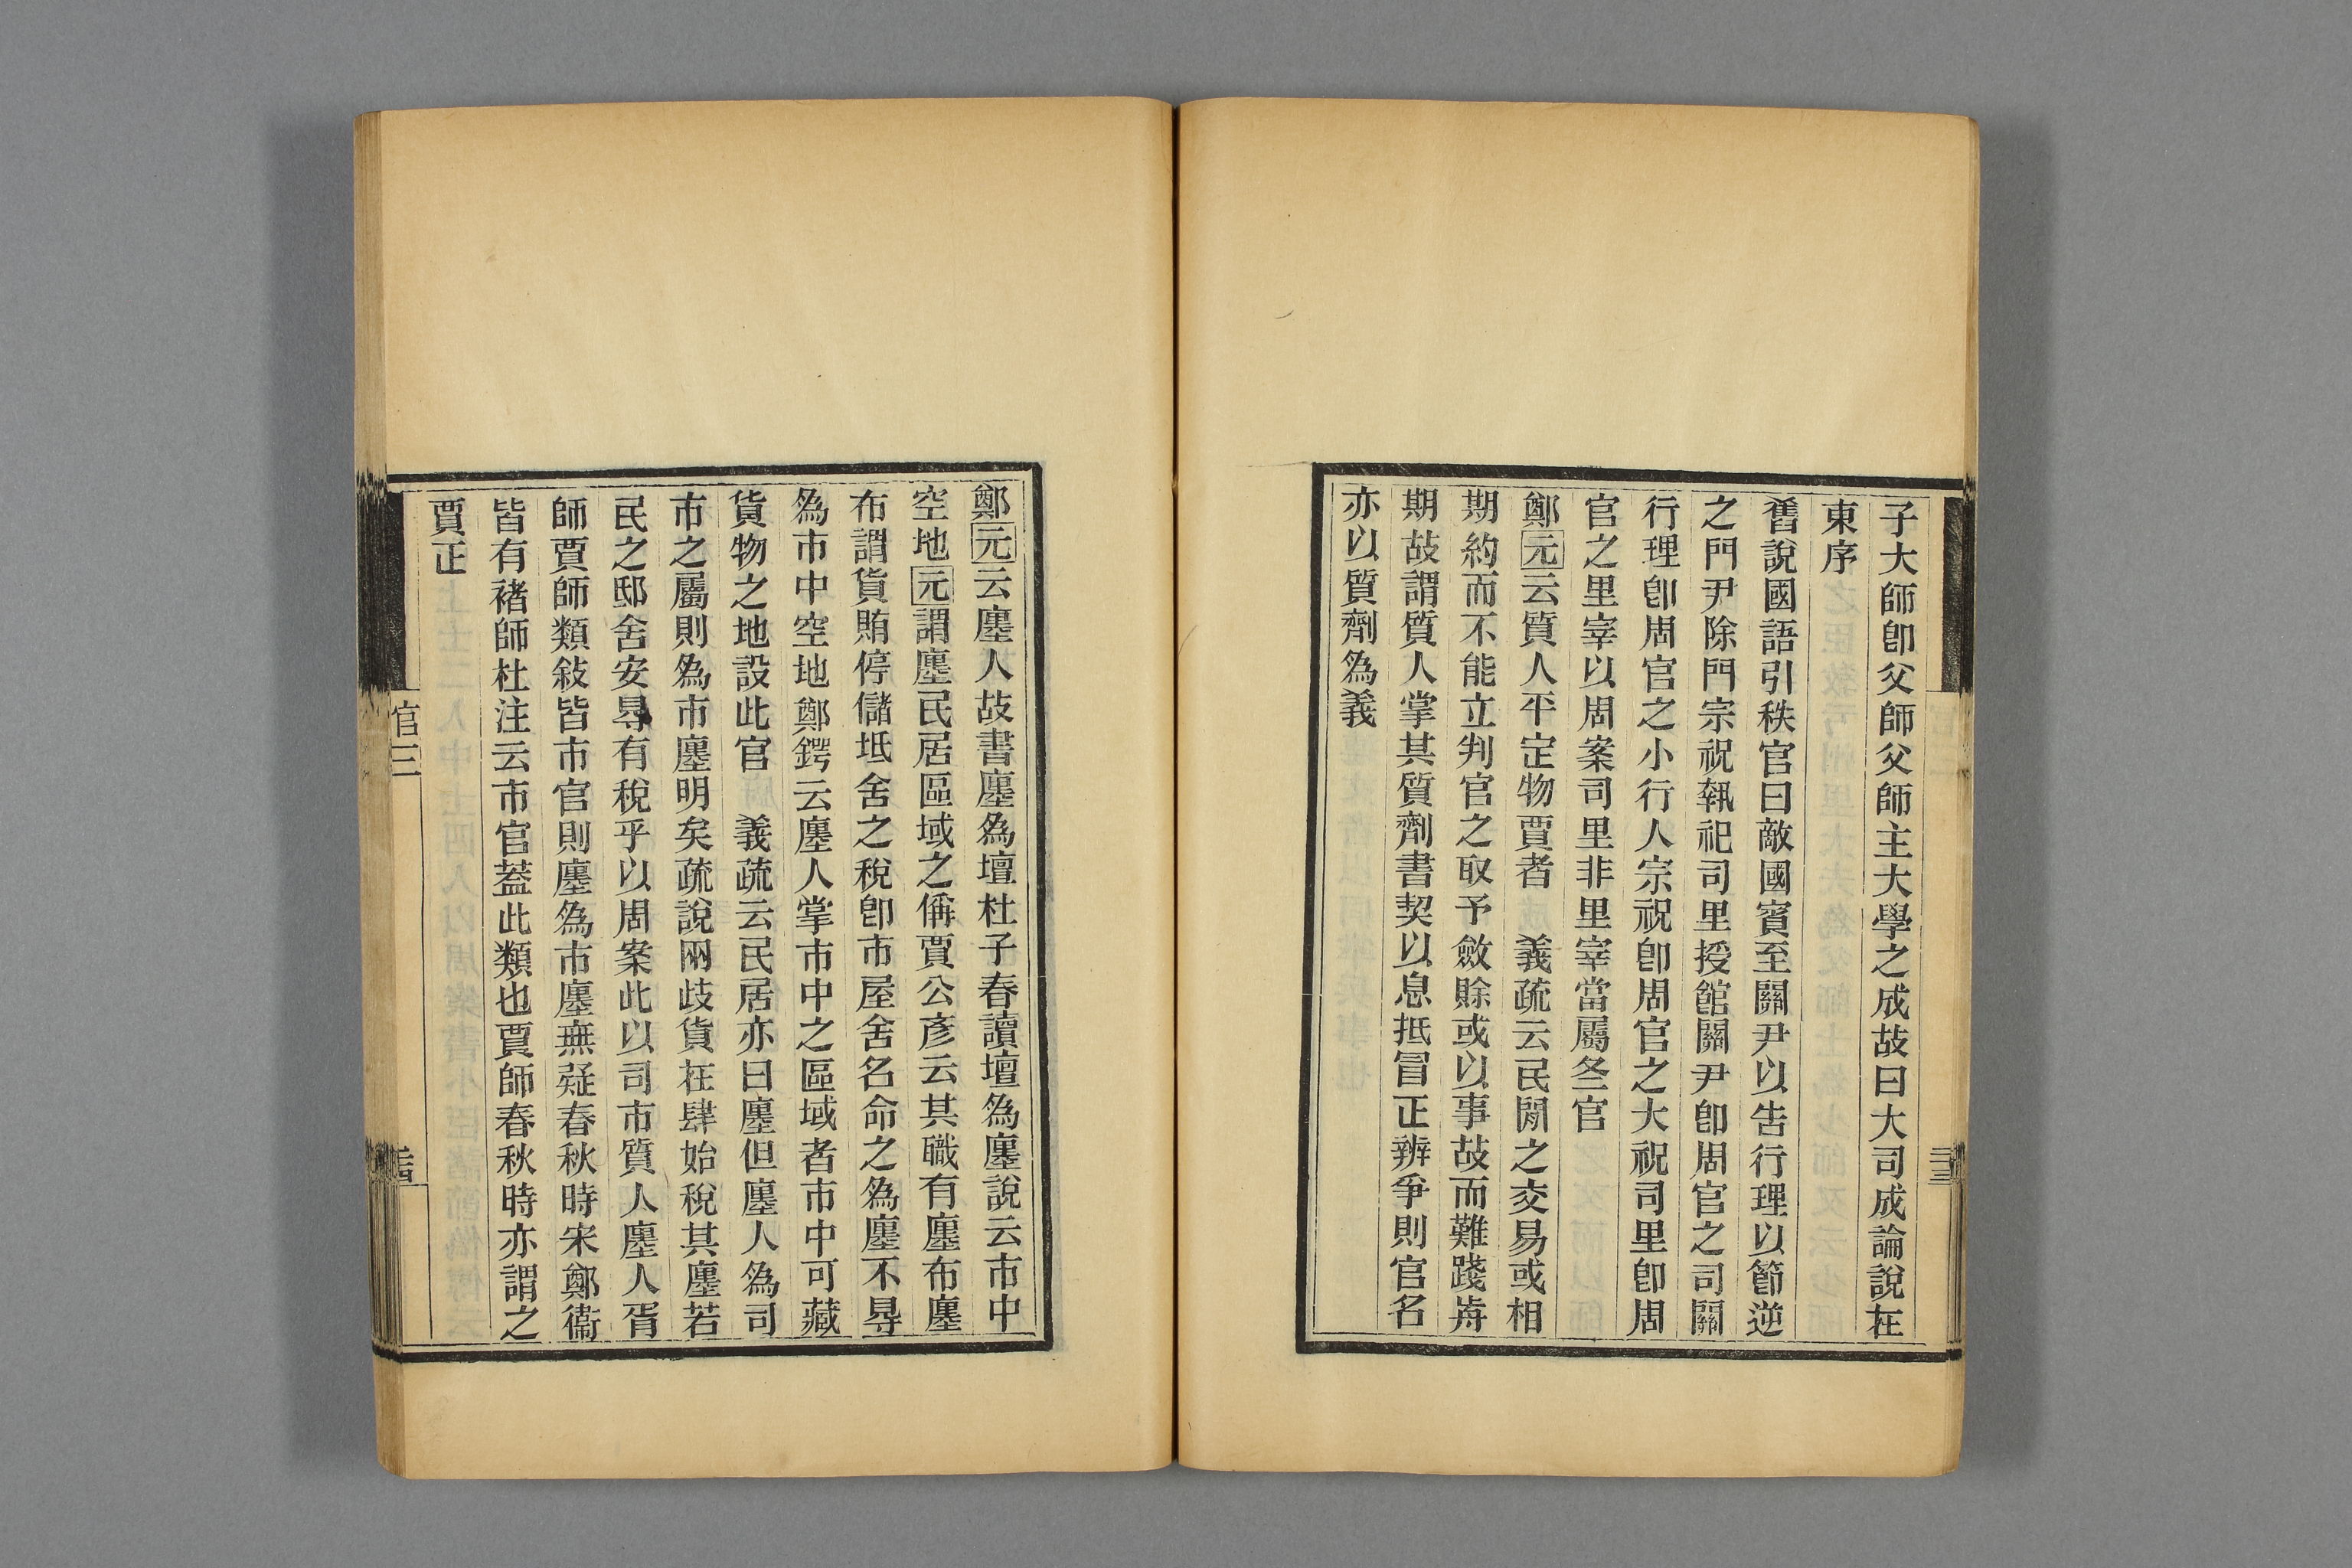 子大師卽父師父師主大學之成故曰大司成論說在
東序
舊說國語引秩官曰敵國賓至關尹以告行理以節逆
之門尹除門宗祝執祀司里授館關尹卽周官之司關
行理卽周官之小行人宗祝卽周官之大祝司里卽周
官之里宰以周案司里非里宰當屬冬官
鄭元云質人平定物賈者　義疏云民閒之交易或相
期約而不能立判官之取予斂賖或以事故而難踐歬
期故謂質人掌其質劑書契以息抵冒正辨爭則官名
亦以質劑為義
鄭元云廛人故書廛為壇杜子春讀壇為廛說云市中
空地元謂廛民居區域之偁賈公彥云其職有廛布廛
布謂貨賄停儲坻舍之稅卽市屋舍名命之為廛不㝵
為市中空地鄭鍔云廛人掌市中之區域者市中可藏
貨物之地設此官　義疏云民居亦曰廛但廛人為司
市之屬則為市廛明矣疏說兩歧貨在肆始稅其廛若
民之邸舍安㝵有稅乎以周案此以司市質人廛人胥
師賈師類敍皆市官則廛為市廛無疑春秋時宋鄭衞
皆有褚師杜注云市官蓋此類也賈師春秋時亦謂之
賈正
官三